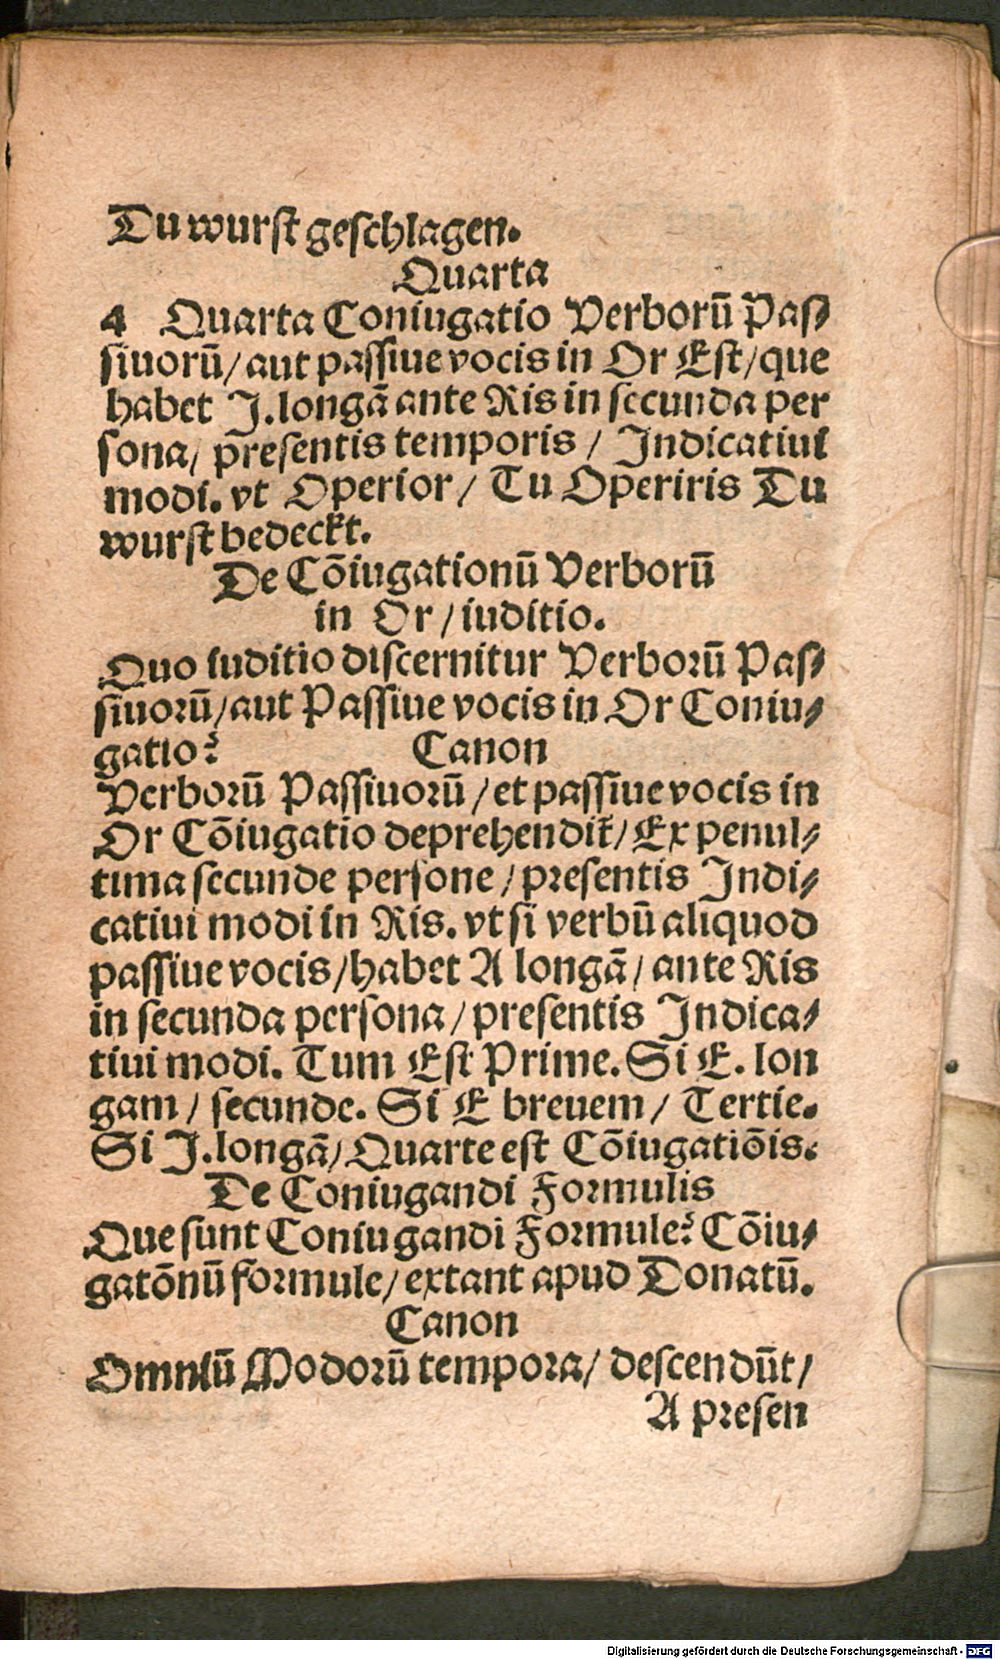 Du wurst geschlagen.
Quarta
4 Quarta Coniugatio Verborū Pas⸗
siuorū/ aut passiue vocis in Or Est/ que
habet J. longā ante Ris in secunda per
sona/ presentis temporis / Indicatiui
modi. vt Operior/ Tu Operiris Du
wurst bedeckt.
De Cōiugationū Verborū
in Or/ iuditio.
Quo iuditio discernitur Verborū Pas⸗
siuorū/ aut Passiue vocis in Or Coniu⸗
gatio? Canon
Verborū Passiuorū / et passiue vocis in
Or Cōiugatio deprehendit̄/ Ex penul⸗
tima secunde persone / presentis Indi⸗
catiui modi in Ris. vt si verbū aliquod
passiue vocis/ habet A longā/ ante Ris
in secunda persona/ presentis Indica⸗
tiui modi. Tum Est Prime. Si E. lon
gam/ secunde. Si E breuem/ Tertie.
Si J. longā/ Quarte est Cōiugatiōis.
De Coniugandi Formulis
Que sunt Coniugandi Formule? Cōiu⸗
gatōnū formule/ extant apud Donatū.
Canon
Omniū Modorū tempora/ descendūt/
A presen
Digitalisierung gefördert durch die Deutsche Forschungsgemeinschaft - DFG